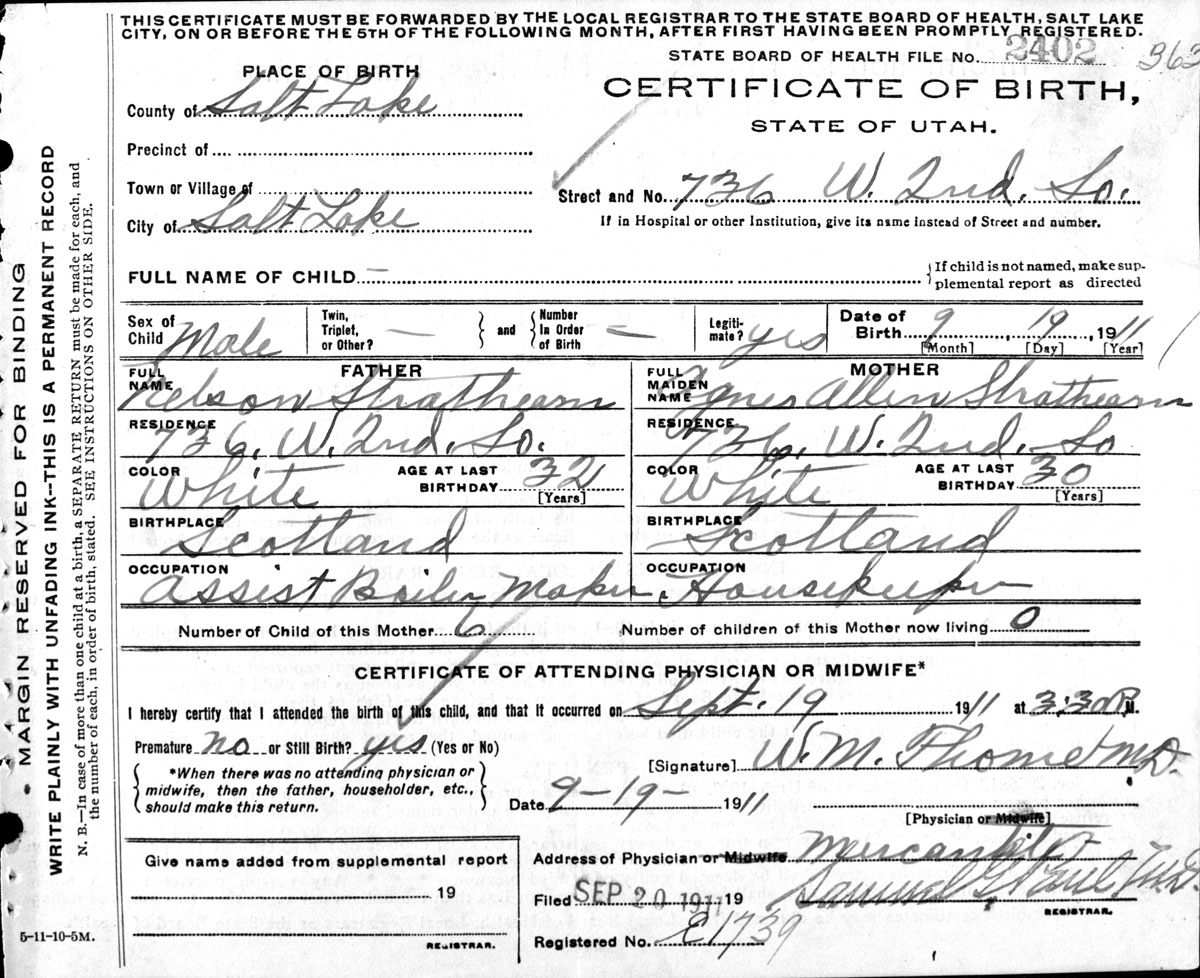 THIS CERTIFICATE MUST BE FORWARDED BY THE LOCAL REGISTRAR TO THE STATE BOARD OF HEALTH, SALT LAKE
CITY, ON OR BEFORE THE 5TH OF THE FOLLOWING MONTH, AFTER FIRST HAVING BEEN PROMPTLY REGISTERED.
STATE BOARD OF HEALTH FILE NO. 2402 363
PLACE OF BIRTH
CERTIFICATE OF BIRTH,
STATE OF UTAH.
County of Salt Lake
Precinct of
Town or Village of
Street and No. 736 W. 2nd. So.
City of Salt Lake
If in Hospital or other Institution, give its name instead of Street and number.
FULL NAME OF CHILD — {If child is not named, make sup-
plemental report as directed
Sex of Child Male
Twin, Triplet, or Other? — } and { Number In Order of Birth —
Legiti-mate? yes
Date of Birth 9, 19, 1911
[Month] [Day] [Year]
FATHER
FULL NAME Nelson Strathearn
MOTHER
FULL MAIDEN NAME Agnes Allen Strathearn
RESIDENCE 736. W. 2nd. So.
RESIDENCE 736. W. 2nd. So
COLOR White AGE AT LAST BIRTHDAY 32 [Years]
COLOR White AGE AT LAST BIRTHDAY 30 [Years]
BIRTHPLACE Scotland
BIRTHPLACE Scotland
OCCUPATION Assist Boiler Maker.
OCCUPATION Housekeeper
Number of Child of this Mother 6 Number of children of this Mother now living 0
CERTIFICATE OF ATTENDING PHYSICIAN OR MIDWIFE*
I hereby certify that I attended the birth of this child, and that it occurred on Sept. 19 1911 at 3:30 P.M.
Premature no or Still Birth? yes (Yes or No)
[Signature] W. M. Thome M.D.
{ *When there was no attending physician or
midwife, then the father, householder, etc.,
should make this return. }
Date 9-19- 1911
[Physician or Midwife]
Give name added from supplemental report
19
REGISTRAR.
Address of Physician or Midwife Mercantile
Filed SEP 20 1911 19 Samuel G. Paul, M.D.
REGISTRAR.
Registered No. E1739
5-11-10-5M.
MARGIN RESERVED FOR BINDING
WRITE PLAINLY WITH UNFADING INK—THIS IS A PERMANENT RECORD
N. B.—In case of more than one child at a birth, a SEPARATE RETURN must be made for each, and
the number of each, in order of birth, stated. SEE INSTRUCTIONS ON OTHER SIDE.